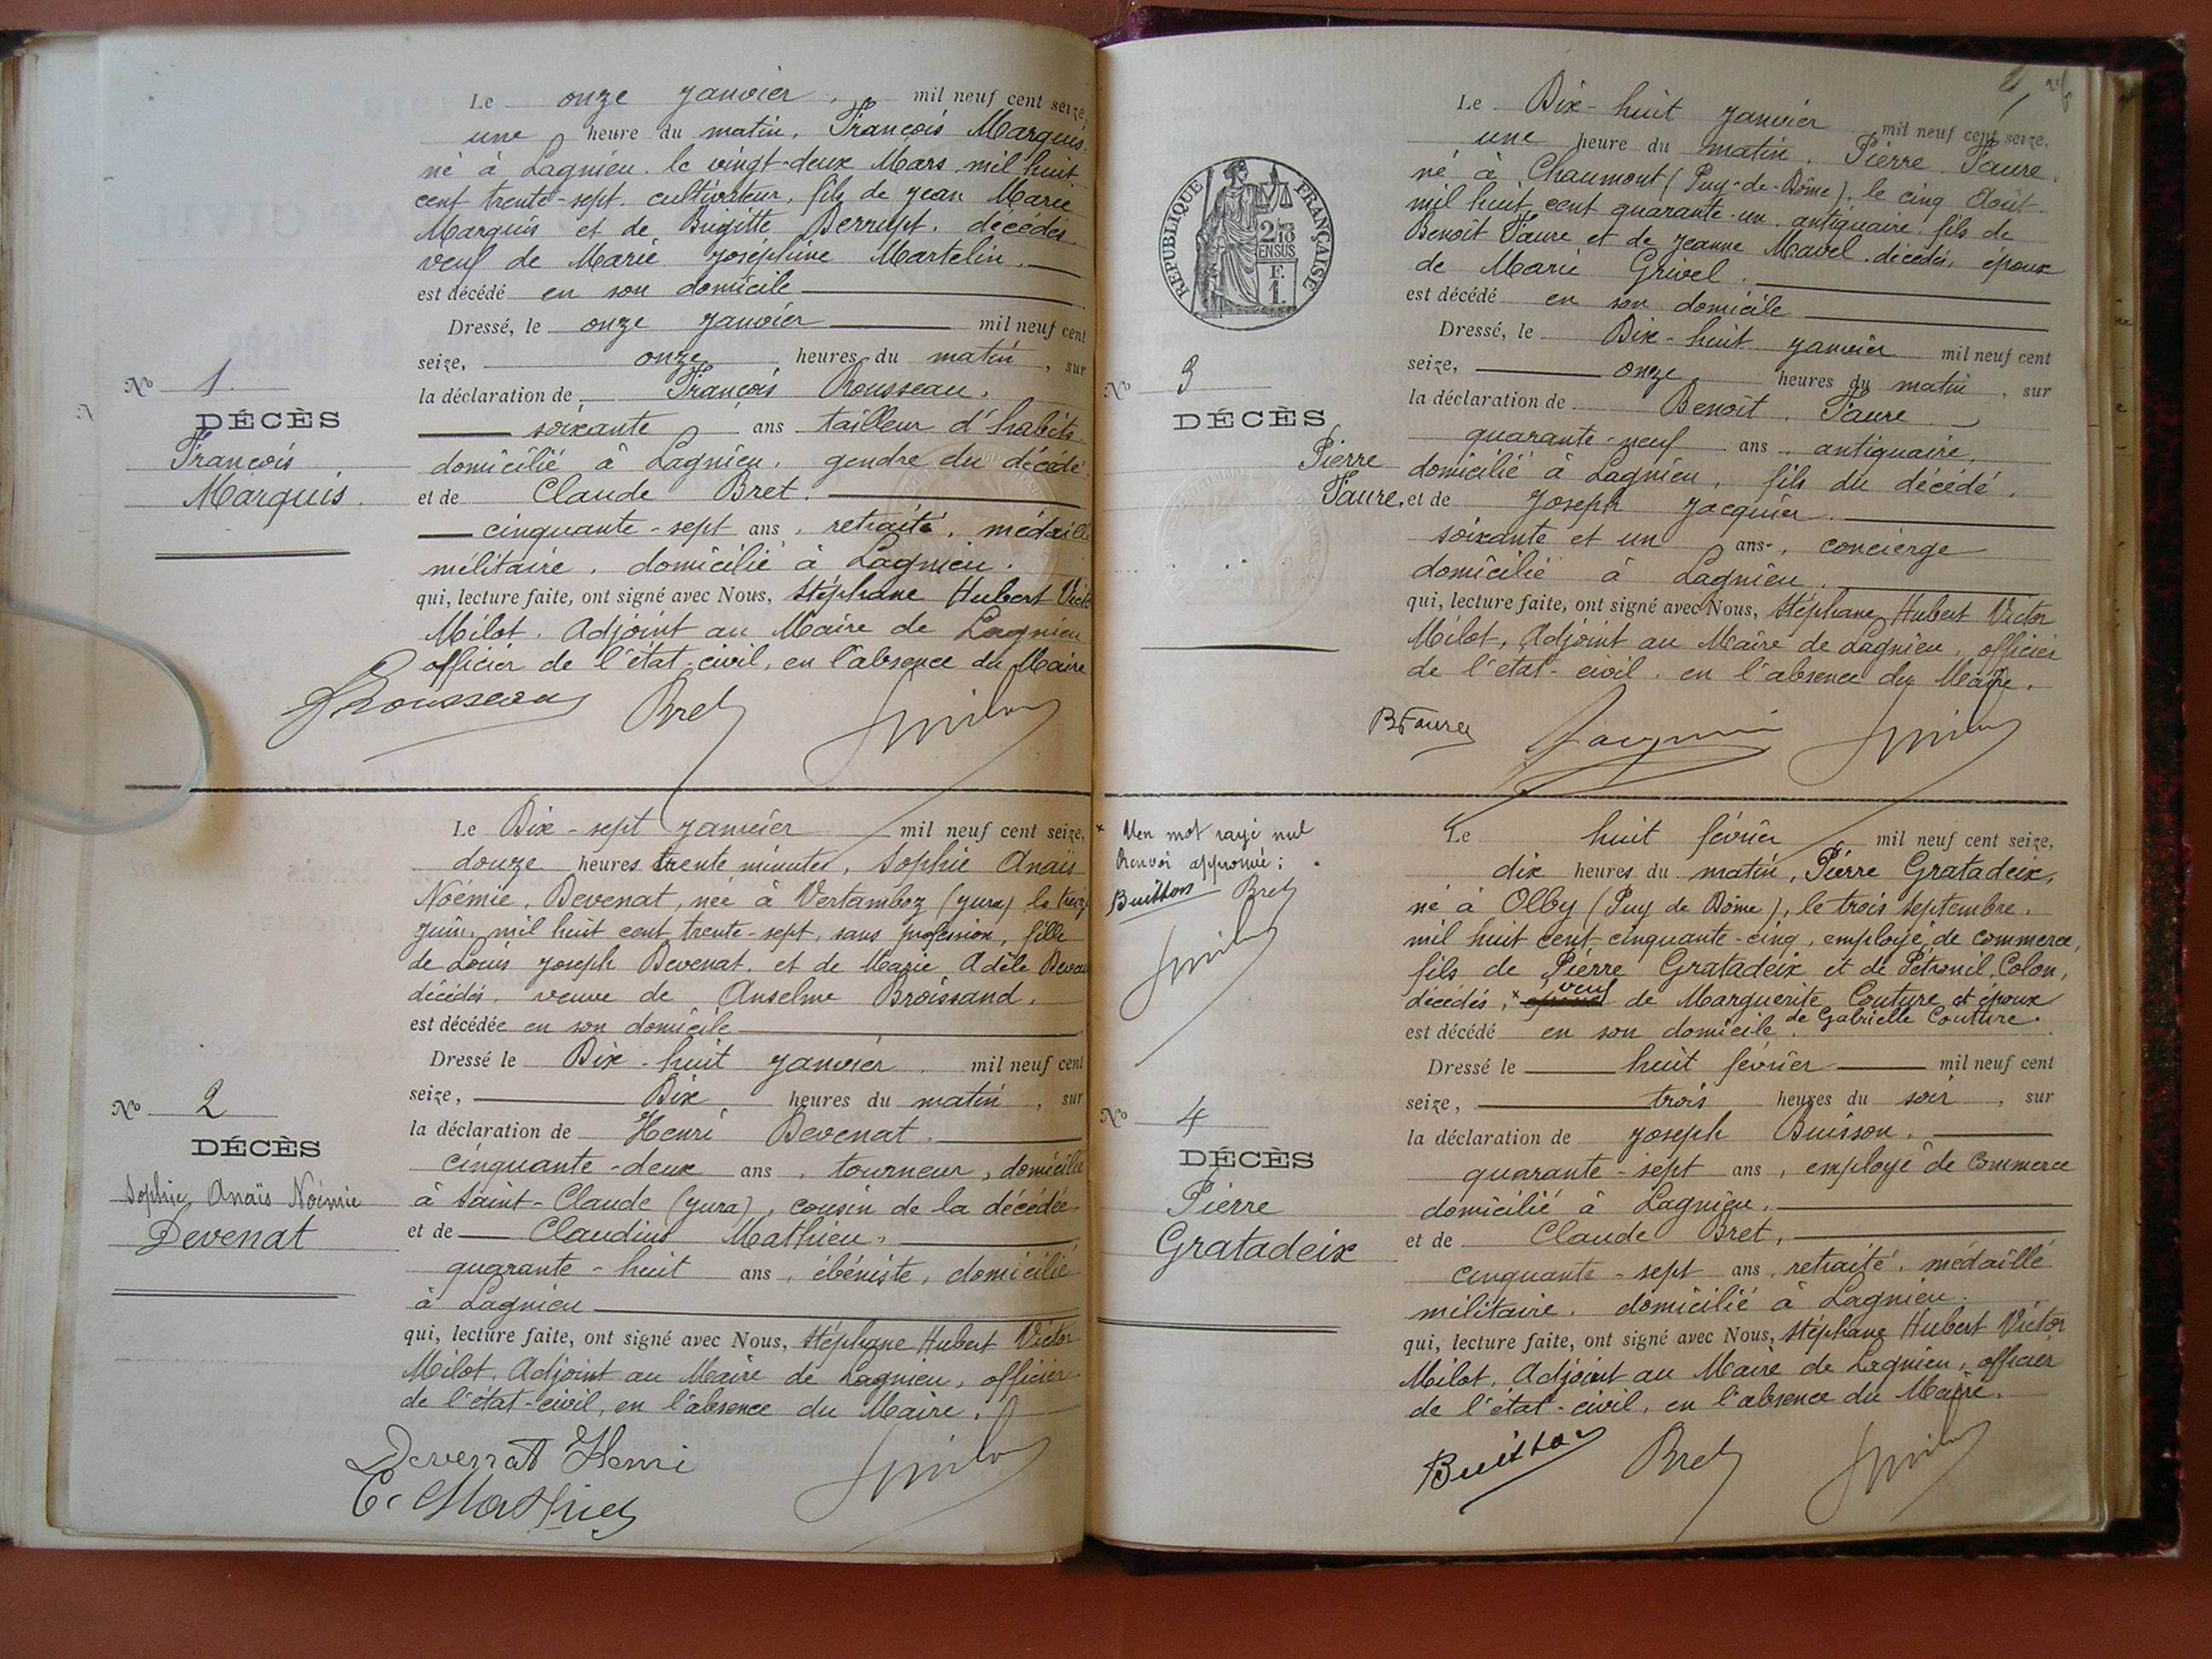 Le onze janvier mil neuf cent seize,
une heure du matin, François Marquis
né à Lagnieu le vingt-deux Mars mil huit
cent trente-sept, cultivateur, fils de Jean Marie
Marquis et de Brigitte Berruyt, décédés,
veuf de Marie Joséphine Martelin.
est décédé en son domicile
Dressé, le onze janvier mil neuf cent
seize, onze heures du matin, sur
la déclaration de François Rousseau,
soixante ans tailleur d'habits
domicilié à Lagnieu, gendre du décédé
et de Claude Bret.
cinquante-sept ans, retraité, médaillé
militaire, domicilié à Lagnieu.
qui, lecture faite, ont signé avec Nous, Stéphane Hubert Victor
Milot, Adjoint au Maire de Lagnieu
officier de l'état-civil, en l'absence du Maire
Rousseau Bret
Nº 1
DÉCÈS
François
Marquis.
Le Dix-sept janvier mil neuf cent seize,
douze heures trente minutes, Sophie Anaïs
Noémie, Devenat, née à Vertamboz (Jura) le treize
juin, mil huit cent trente-sept, sans profession, fille
de Louis Joseph Devenat, et de Marie Adèle
décédés, veuve de Anselme Broissand,
est décédée en son domicile
Dressé le Dix-huit janvier mil neuf cent
seize, Dix heures du matin, sur
la déclaration de Henri Devenat
cinquante-deux ans, tourneur, domicilié
à Saint-Claude (Jura), cousin de la décédée,
et de Claudius Mathieu,
quarante-huit ans, ébéniste, domicilié
à Lagnieu
qui, lecture faite, ont signé avec Nous, Stéphane Hubert Victor
Milot, Adjoint au Maire de Lagnieu, officier
de l'état-civil, en l'absence du Maire.
Devenat Henri
C. Mathieu
Nº 2
DÉCÈS
Sophie Anaïs Noémie
Devenat
Le Dix-huit janvier mil neuf cent seize,
une heure du matin, Pierre Faure,
né à Chaumont (Puy-de-Dôme), le cinq Août
mil huit cent quarante-un, antiquaire, fils de
Benoît Faure et de Jeanne Mavel, décédés, époux
de Marie Grivel.
est décédé en son domicile
Dressé, le Dix-huit janvier mil neuf cent
seize, onze heures du matin, sur
la déclaration de Benoît Faure
quarante-neuf ans, antiquaire,
domicilié à Lagnieu, fils du décédé,
et de Joseph Jacquier.
soixante et un ans, concierge
domicilié à Lagnieu.
qui, lecture faite, ont signé avec Nous, Stéphane Hubert Victor
Milot, Adjoint au Maire de Lagnieu, officier
de l'état-civil, en l'absence du Maire.
B Faure
RÉPUBLIQUE FRANÇAISE
2/10
EN SUS
F.
1.
Nº 3
DÉCÈS
Pierre
Faure.
Le huit février mil neuf cent seize,
dix heures du matin, Pierre Gratadeix,
né à Olby (Puy de Dôme), le trois Septembre,
mil huit cent cinquante-cinq, employé de commerce,
fils de Pierre Gratadeix et de Pétronil Colon,
décédés, × époux veuf de Marguerite Couture et époux
de Gabrielle Couture.
est décédé en son domicile.
Dressé le huit février mil neuf cent
seize, trois heures du soir, sur
la déclaration de Joseph Buisson.
quarante-sept ans, employé de Commerce
domicilié à Lagnieu.
et de Claude Bret,
cinquante-sept ans, retraité, médaillé
militaire, domicilié à Lagnieu.
qui, lecture faite, ont signé avec Nous, Stéphane Hubert Victor
Milot, Adjoint au Maire de Lagnieu, officier
de l'état-civil, en l'absence du Maire.
Buisson Bret
× Un mot rayé nul
Renvoi approuvé:
Buisson Bret
Nº 4
DÉCÈS
Pierre
Gratadeix